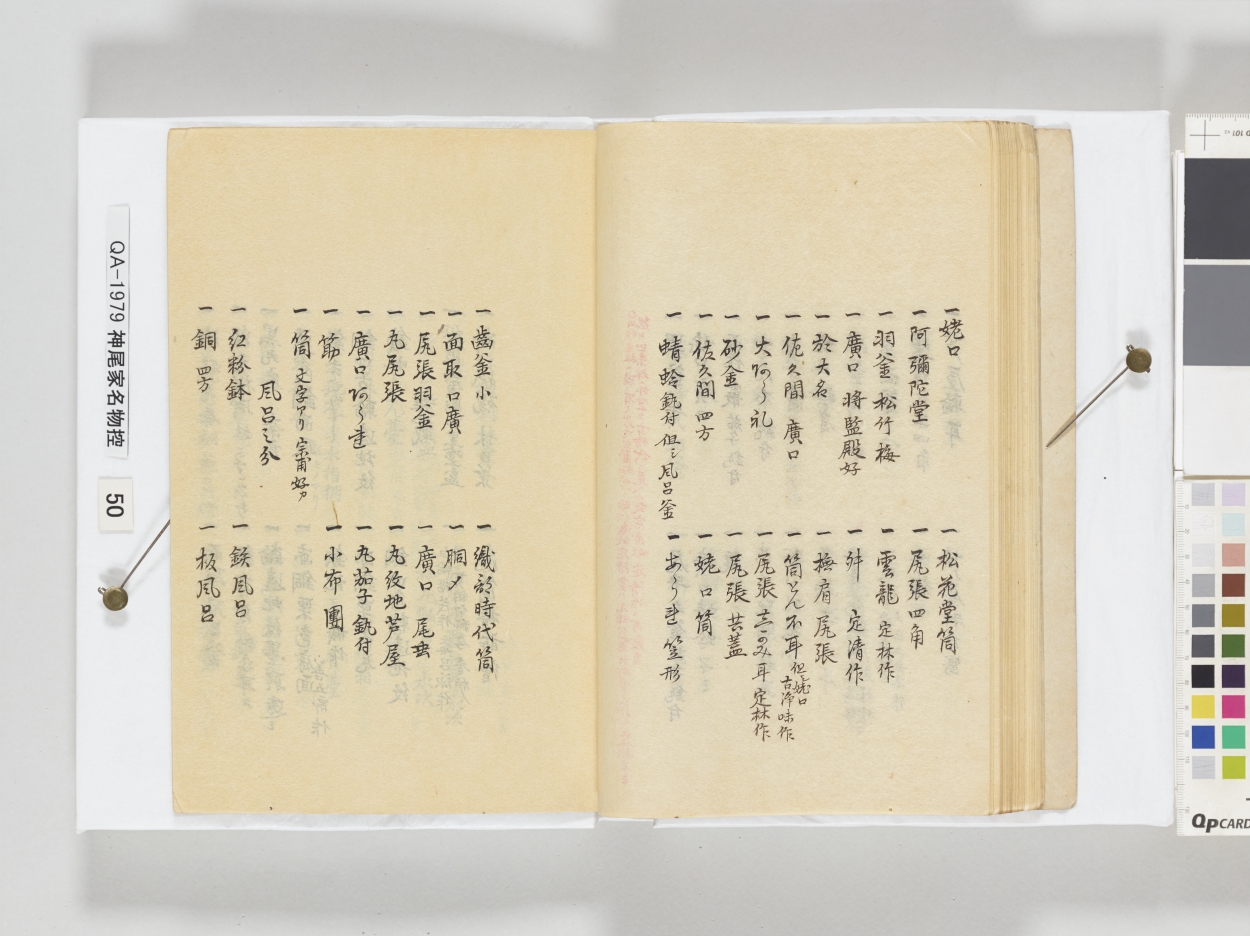 一 姥口
一 阿彌陀堂
一 羽釜 松竹梅
一 廣口 将監殿好
一 於大名
一 佐久間 廣口
一 大あられ
一 砂金
一 佐久間 四方
一 蜻蛉釻付 但シ風呂釜
一 松花堂筒
一 尻張四角
一 雲龍 定林作
一 定清作
一 撫肩尻張
一 筒 耳 但シ姥口 古浄味作
一 尻張 耳 定林作
一 尻張 共蓋
一 姥口筒
一 あられ 笠形
一 歯釜小
一 面取口廣
一 尻張羽釜
一 丸尻張
一 廣口
一 筋
一 筒 文字アリ 宗甫好
風呂之分
一 紅粉鉢
一 銅 四方
一 織部時代筒
一 胴〆
一 廣口 尾垂
一 丸紋地芦屋
一 丸茄子 釻付
一 小布團
一 鉄風呂
一 板風呂
QA-1979 神尾家名物控
50
QPCARD